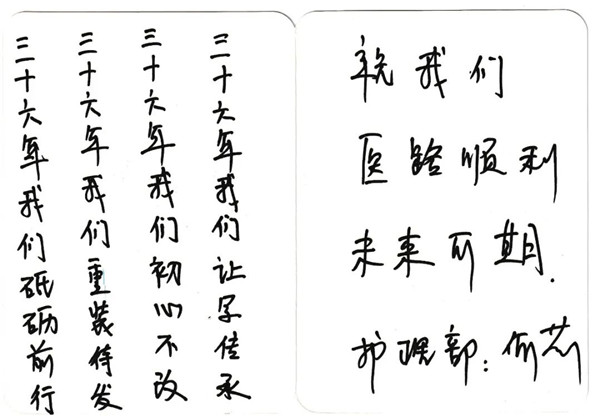 三十六年我们砥砺前行
三十六年我们重装待发
三十六年我们初心不改
三十六年我们让传承
祝我们
医路顺利
未来可期.
护理部:何